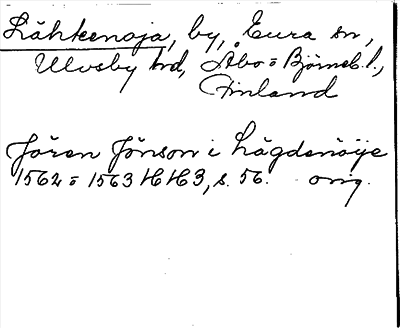 Lähteenoja, by, Eura sn,
Ulvsby hrd, Åbo = Björneb. l.,
Finland
Jören Jönson i Lägdenöije
1562 = 1563 HH3, s. 56. orig.